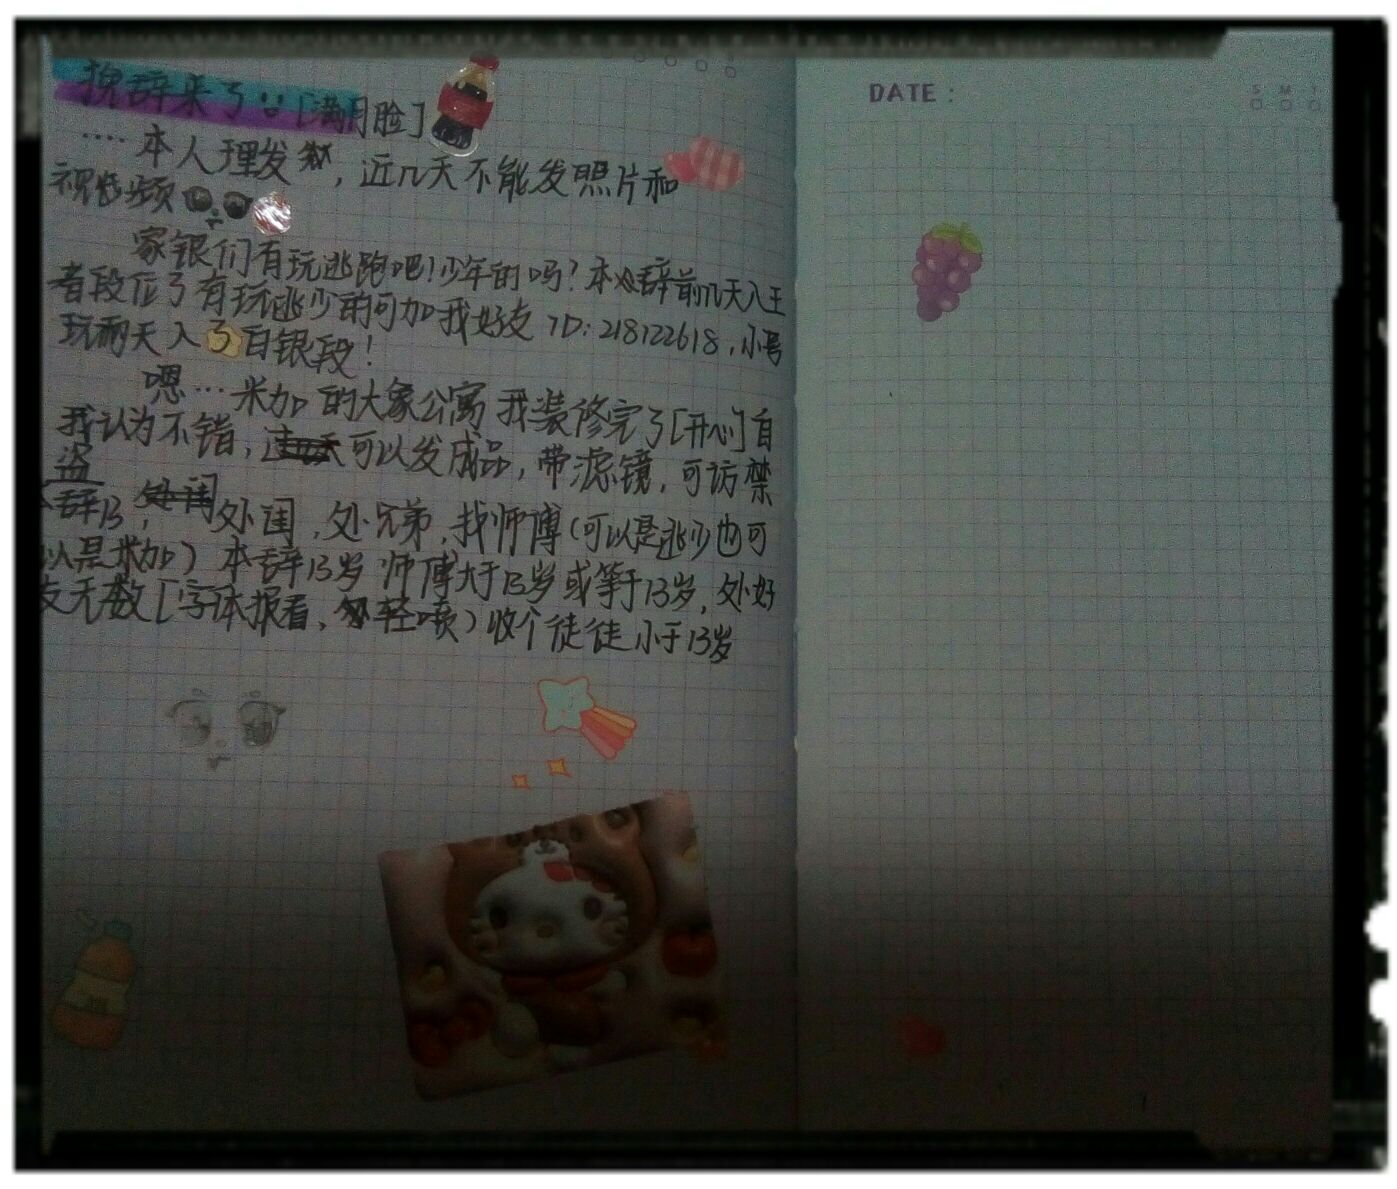 挽辞来了[满月脸]
····本人理发,近几天不能发照片和
视频
家银们有玩逃跑吧!少年的吗?本辞前几天入王
者段位了有玩逃少的可加我好友 ID:218122618,小号
玩两天入了白银段!
嗯…米加的大象公寓我装修完了[开心]自
我认为不错,可以发成品,带滤镜,可访禁
盗
本辞13,处闺,处兄弟,找师傅(可以是逃少也可
以是米加)本辞13岁 师傅大于13岁或等于13岁,处好
友无数[字体报看,轻喷)收个徒徒小于13岁
DATE:
S M T